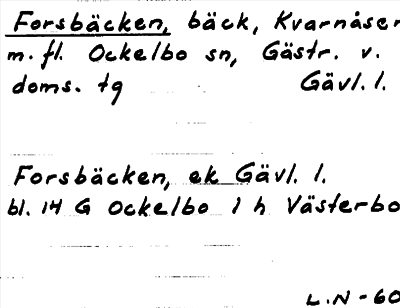 Forsbäcken, bäck, Kvarnåser
m.fl. Ockelbo sn, Gästr. v.
doms. tg Gävl. l.
Forsbäcken, ek Gävl. l.
bl. 14 G Ockelbo 1 h Västerbo
L.N-60